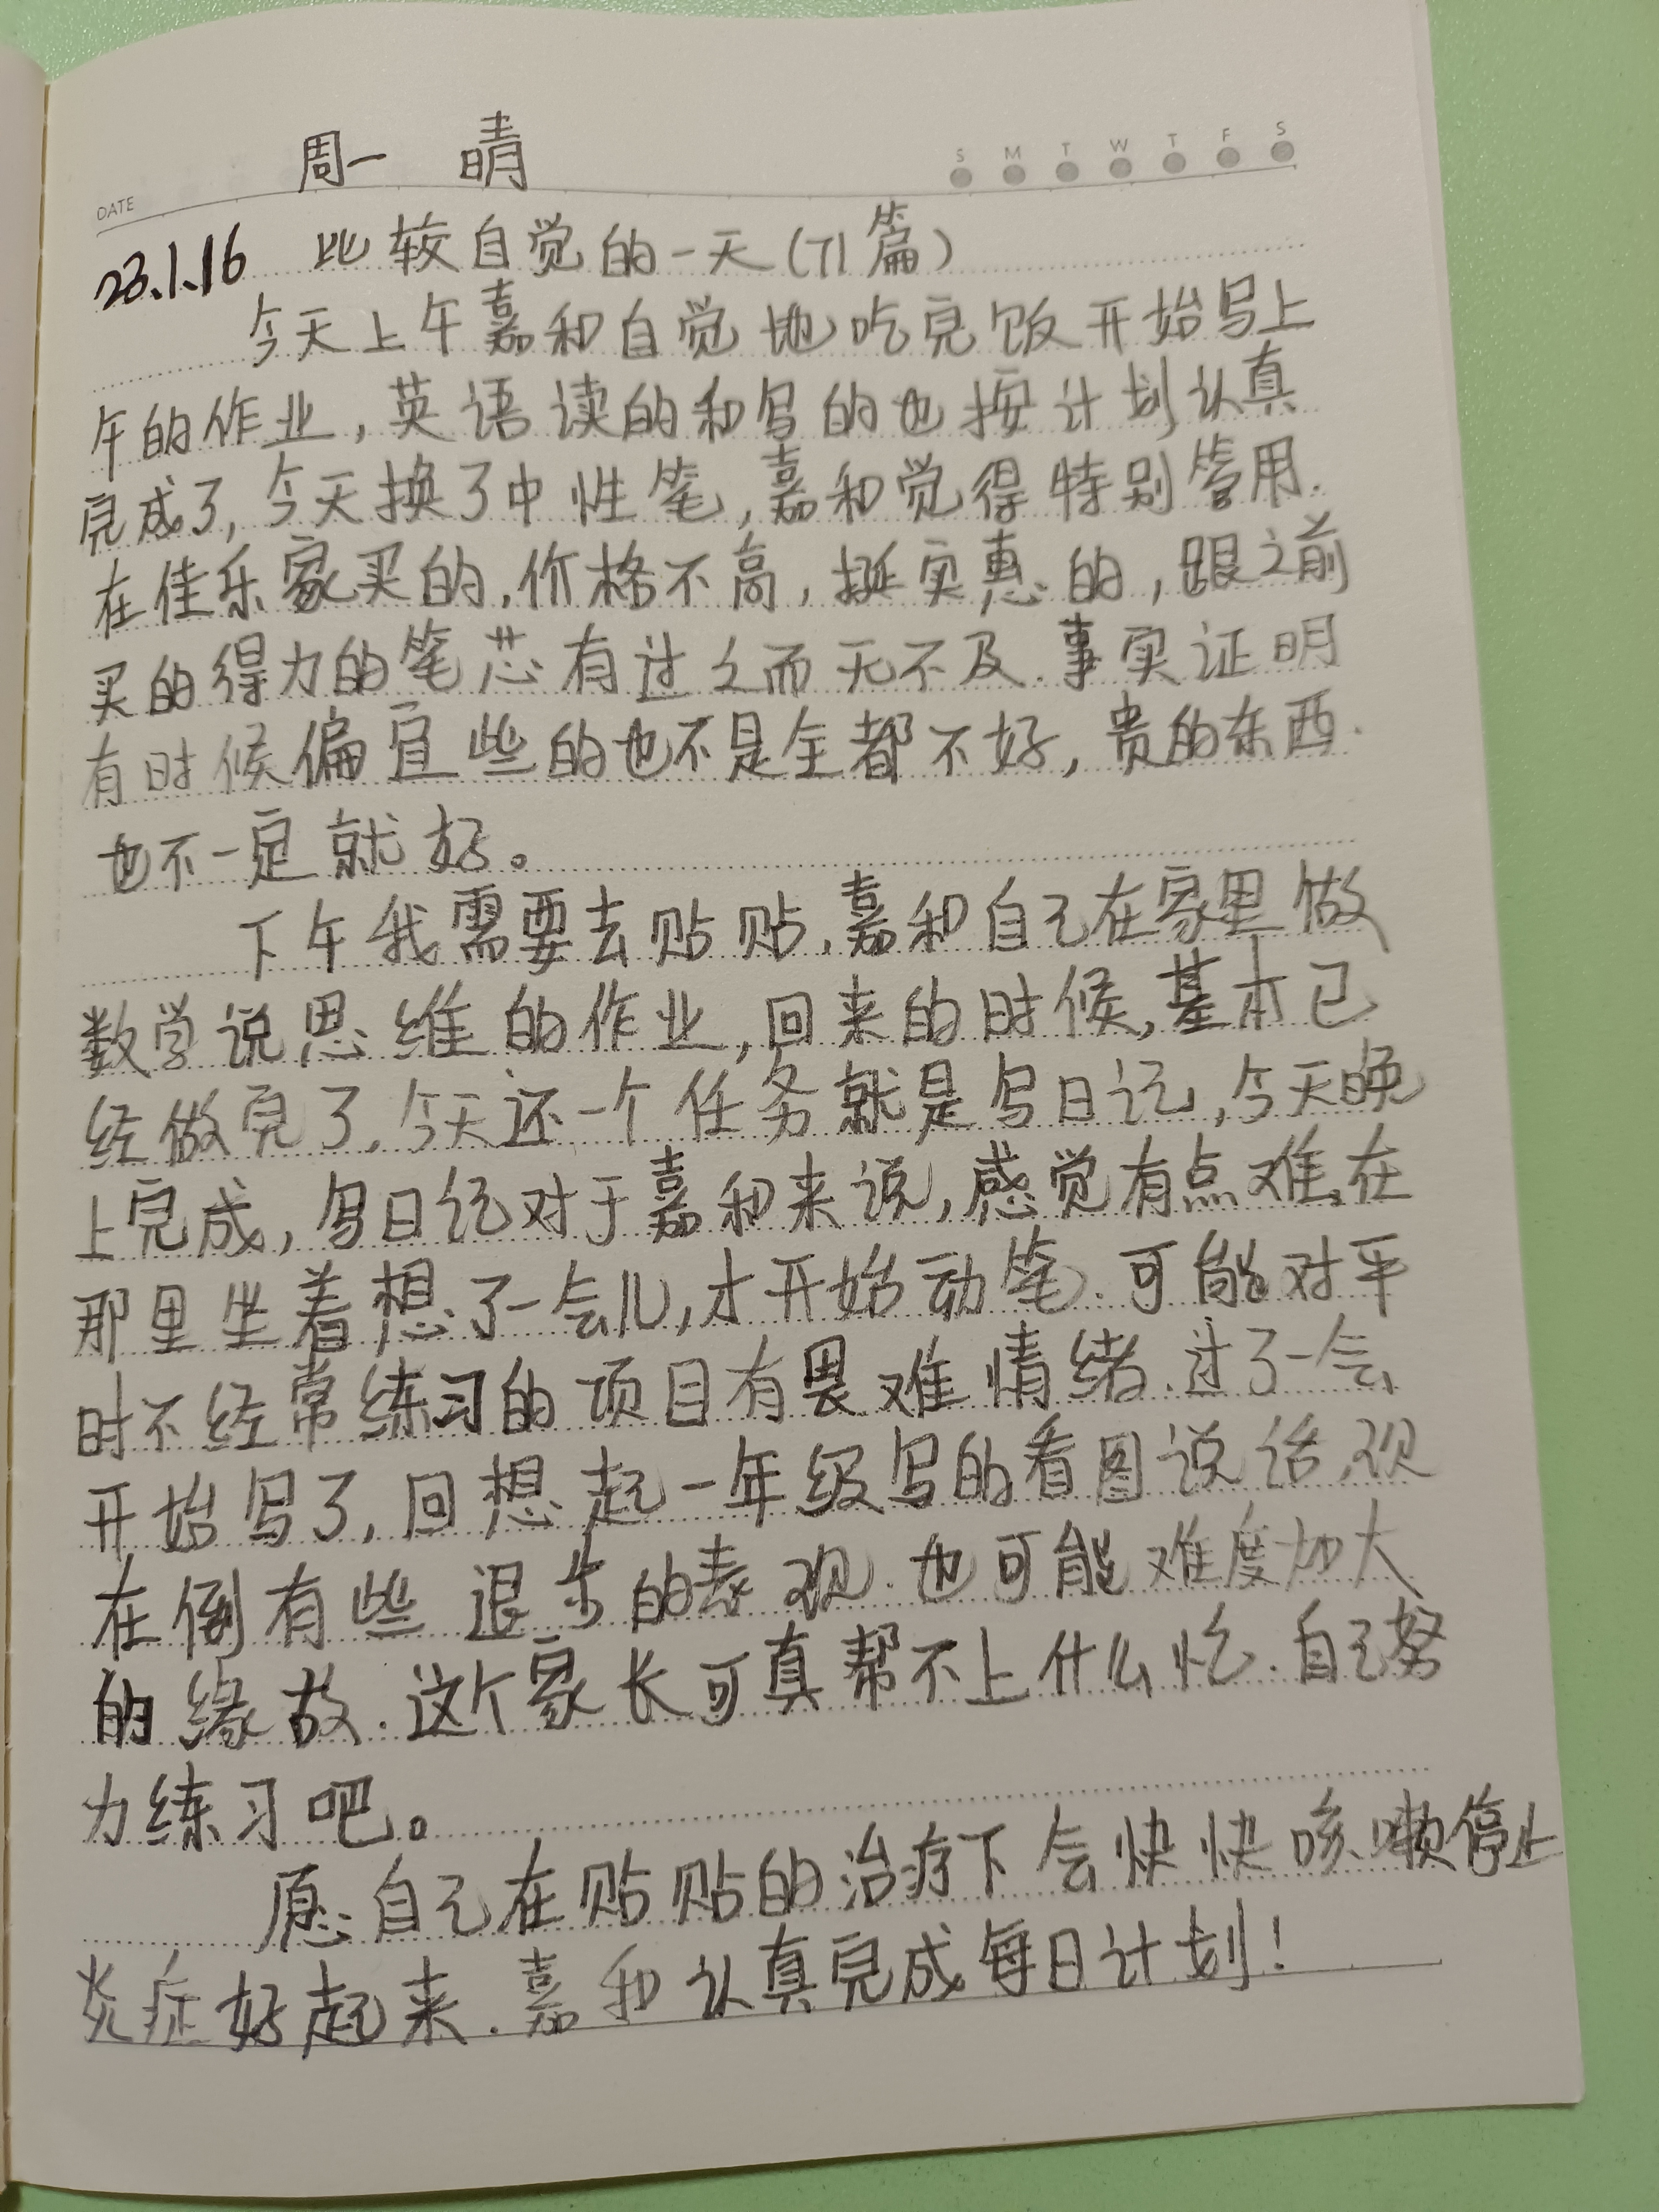 周一 晴
S M T W T F S
DATE
23.1.16 比较自觉的一天(71篇)
今天上午嘉和自觉地吃完饭开始写上
午的作业,英语读的和写的也按计划认真
完成了,今天换了中性笔,嘉和觉得特别管用.
在佳乐家买的.价格不高,挺实惠的,跟之前
买的得力的笔芯有过之而无不及.事实证明
有时候偏宜些的也不是全都不好,贵的东西.
也不一定就好。
下午我需要去贴贴.嘉和自己在家里做
数学说思维的作业,回来的时候,基本已
经做完了.今天还一个任务就是写日记,今天晚
上完成,写日记对于嘉和来说,感觉有点难.在
那里坐着想了一会儿,才开始动笔.可能对平
时不经常练习的项目有畏难情绪.过了一会
开始写了,回想起一年级写的看图说话.现
在倒有些退步的表现.也可能难度加大
的缘故.这个家长可真帮不上什么忙.自己努
力练习吧。
愿自己在贴贴的治疗下会快快咳嗽停止
炎症好起来.嘉和认真完成每日计划!